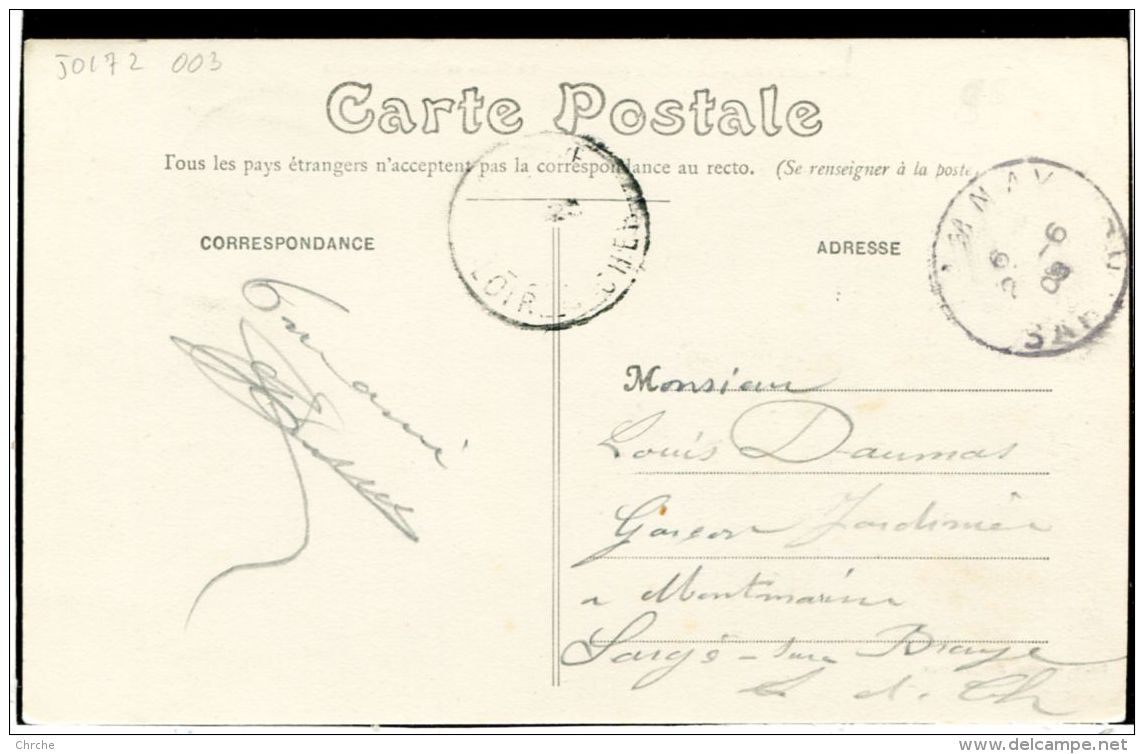 J0172 003
Carte Postale
Tous les pays étrangers n'acceptent pas la correspondance au recto. (Se renseigner à la poste)
CORRESPONDANCE
ADRESSE
LOIR CHER
NAY
26 -6
08
SAR
Ton ami
Monsieur
Louis Daumas
Garçon Jardinier
a Montmarin
Sargé-sur Braye
L et Ch
Chrche
delcampe.net